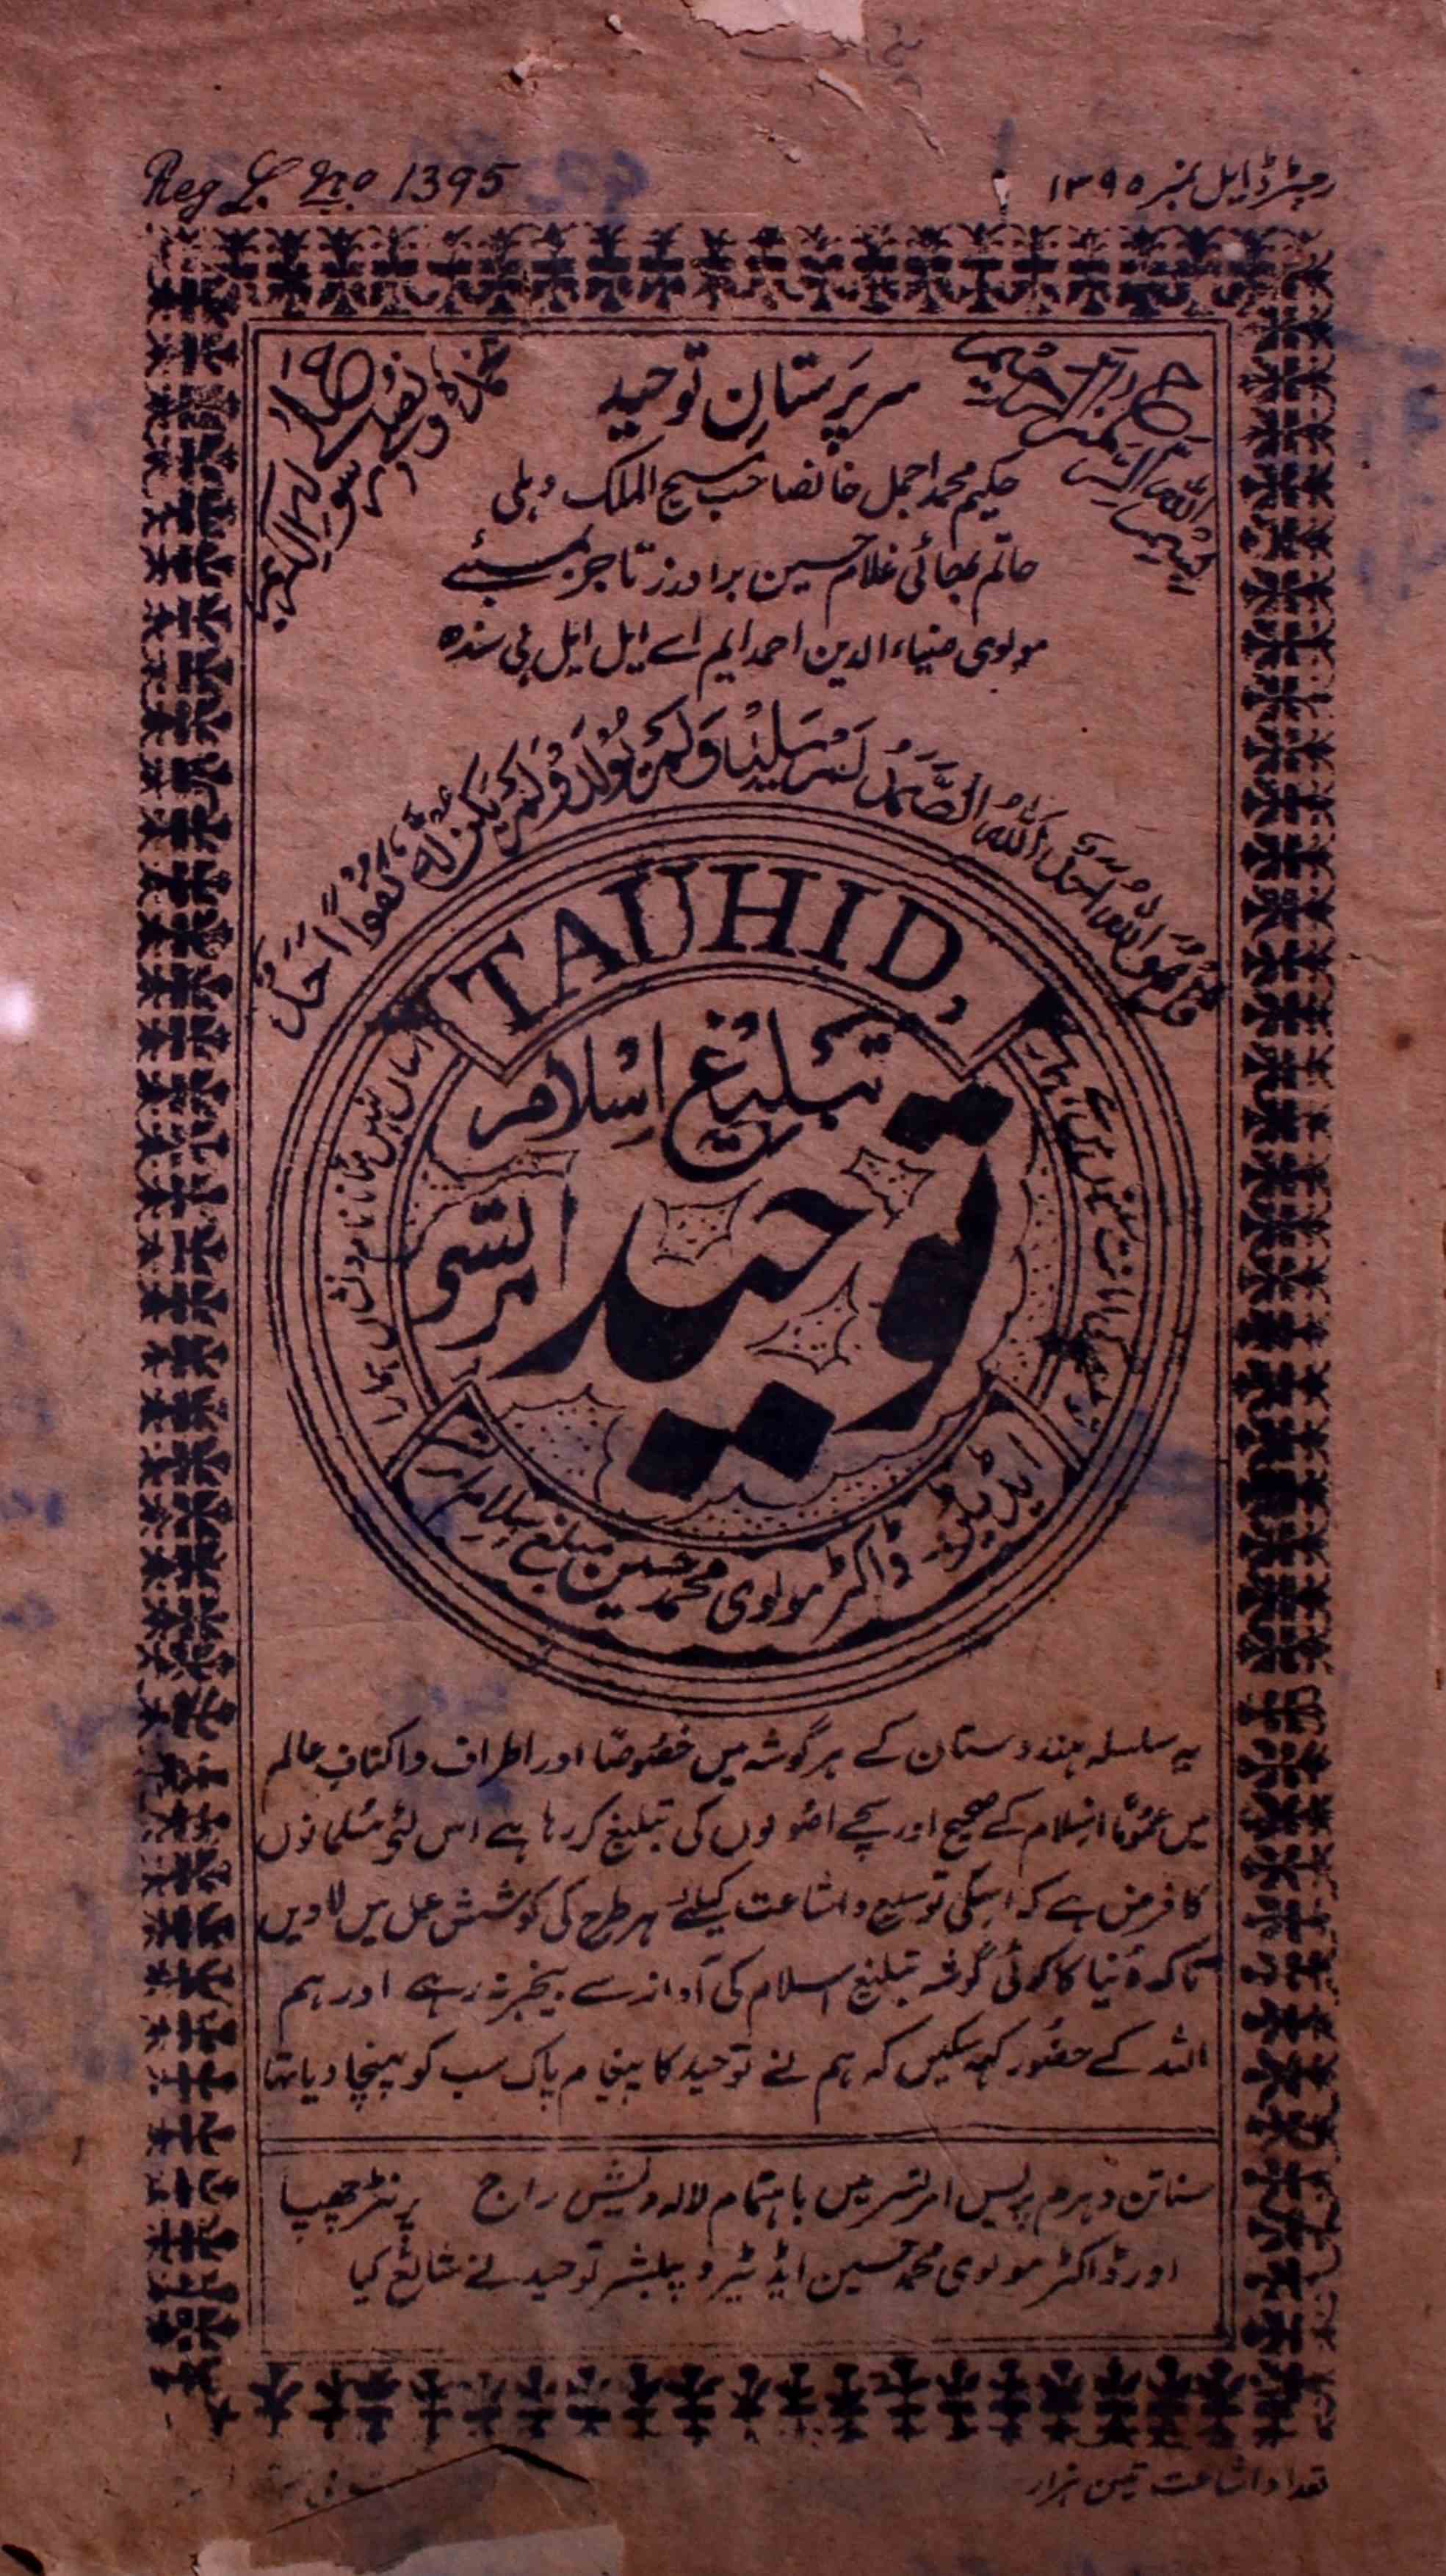 رجسٹرڈ ایل نمبر ۱۳۹۵
Reg L. No. 1395
بسم اللہ الرحمن الرحیم
سرپرستانِ توحید
حکیم محمد اجمل خانصاحب مسیح الملک دہلی
حاتم بھائی غلام حسین برادرز تاجر بمبئے
مولوی ضیاء الدین احمد ایم اے ایل ایل بی سندہ
قُلْ هُوَ اللهُ اَحَدٌ اَللهُ الصَّمَدُ لَمْ يَلِدْ وَلَمْ يُولَدْ وَلَمْ يَكُنْ لَهُ كُفُوًا اَحَدٌ
TAUHID,
توحید کی امانت سینوں میں ہے ہمارے
آساں نہیں مٹانا نام و نشاں ہمارا
تبلیغ اسلام
توحید امرتسر
ایڈیٹر۔ ڈاکٹر مولوی محمد حسین مبلغ اسلام امرتسر
یہ سلسلہ ہندوستان کے ہر گوشہ میں خصُوصًا اور اطراف و اکنافِ عالم
میں عمُومًا اسلام کے صحیح اور سچے اصُولوں کی تبلیغ کر رہا ہے اس لئے مسُلمانوں
کا فرض ہے کہ اسکی توسیع و اشاعت کیلئے ہر طرح کی کوشش عمل میں لاویں
تاکہ دُنیا کا کوئی گوشہ تبلیغ اسلام کی آواز سے بیخبر نہ رہے اور ہم
اللہ کے حضُور کہہ سکیں کہ ہم نے توحید کا پیغام پاک سب کو پہنچا دیا تھا
سناتن دہرم پریس امرتسر میں باہتمام لالہ دیش راج پرنٹر چھپا
اور ڈاکٹر مولوی محمد حسین ایڈیٹر و پبلشر توحید نے شائع کیا
تعداد اشاعت تین ہزار